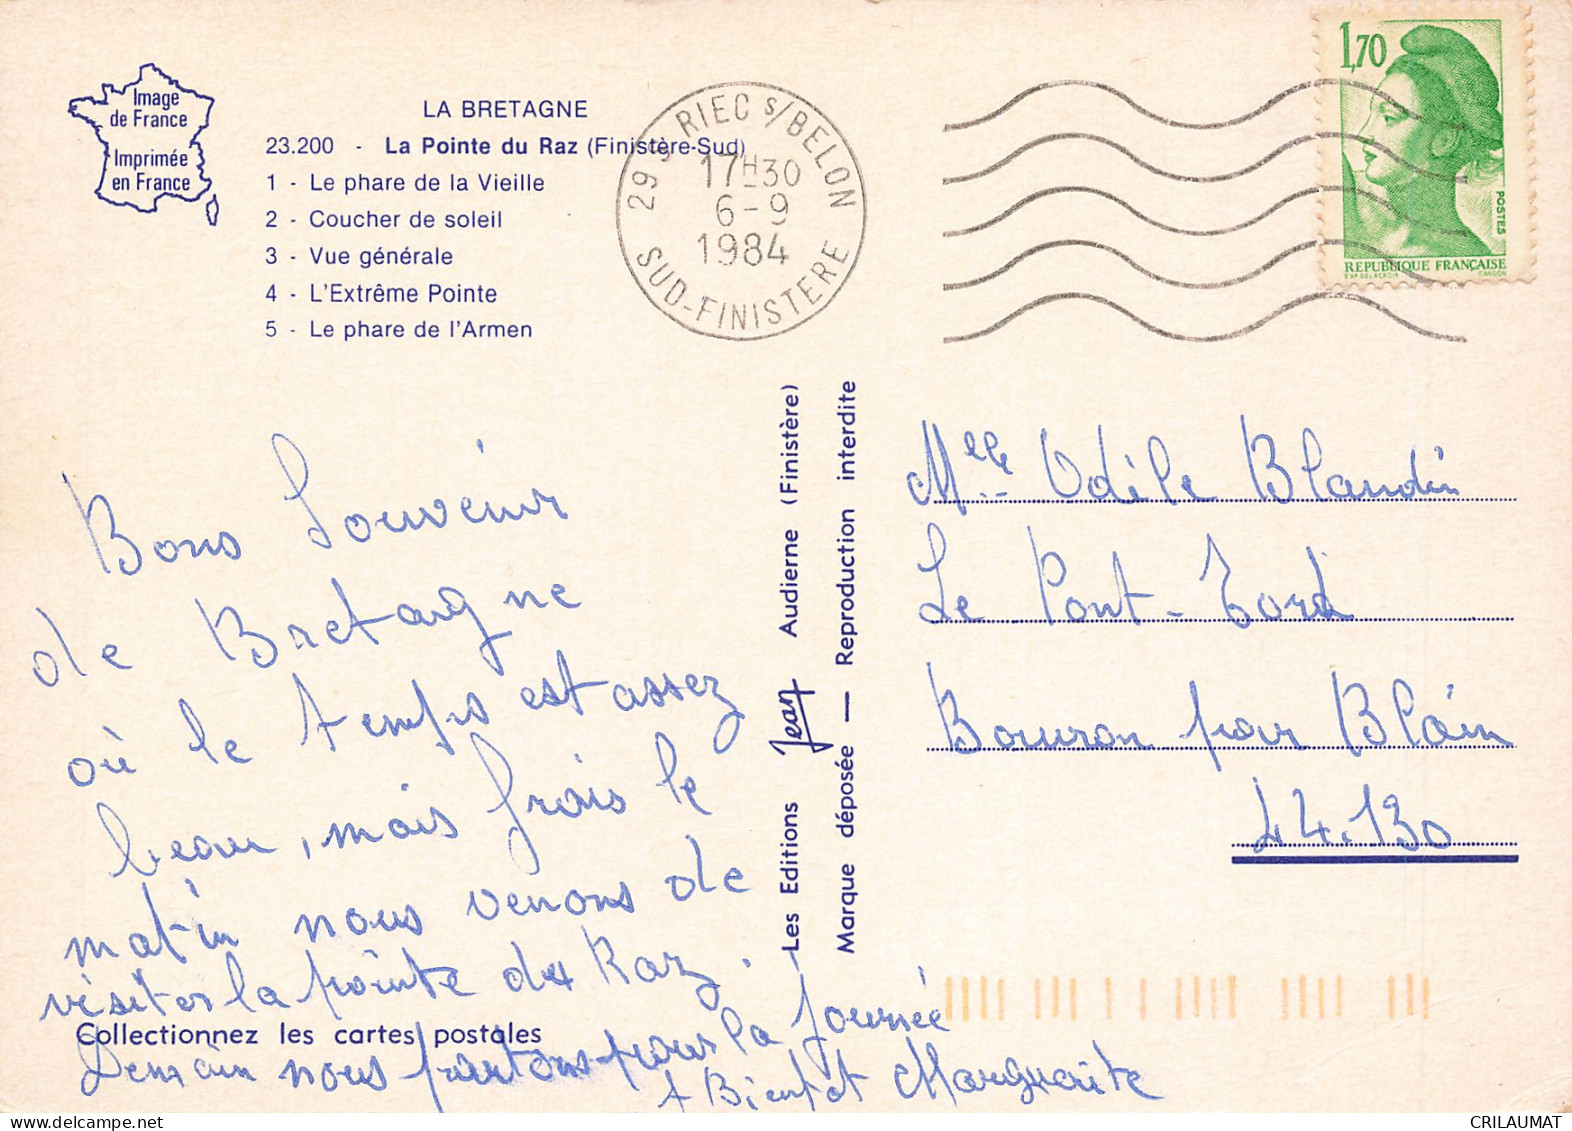 Image
de France
Imprimée
en France
LA BRETAGNE
23.200 - La Pointe du Raz (Finistère-Sud)
1 - Le phare de la Vieille
2 - Coucher de soleil
3 - Vue générale
4 - L'Extrême Pointe
5 - Le phare de l'Armen
29 S RIEC s/BELON
17H30
6-9
1984
SUD-FINISTERE
1,70
POSTES
REPUBLIQUE FRANÇAISE
D'AP. DELACROIX GANDON
Bons Souvenir
de Bretagne
où le temps est assez
beau, mais frais le
matin nous venons de
visiter la pointe du Raz.
Demain nous partons pour la journée
A Bientot Marguerite
Collectionnez les cartes postales
Les Editions Jean Audierne (Finistère)
Marque déposée — Reproduction interdite
Melle Odile Blandin
Le Pont-Tord
Bouvron par Blain
44.130
CRILAUMAT